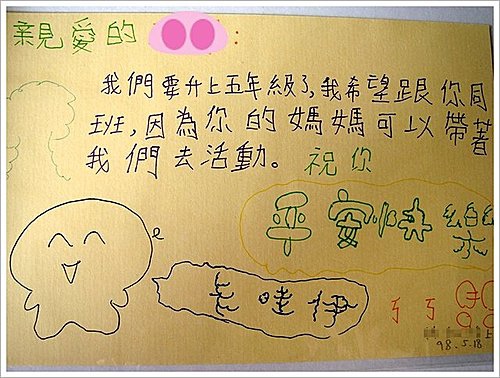 親愛的 :
我們要升上五年級了,我希望跟你同
班,因為你的媽媽可以帶著
我們去活動。祝你
平安快樂
98.5.18